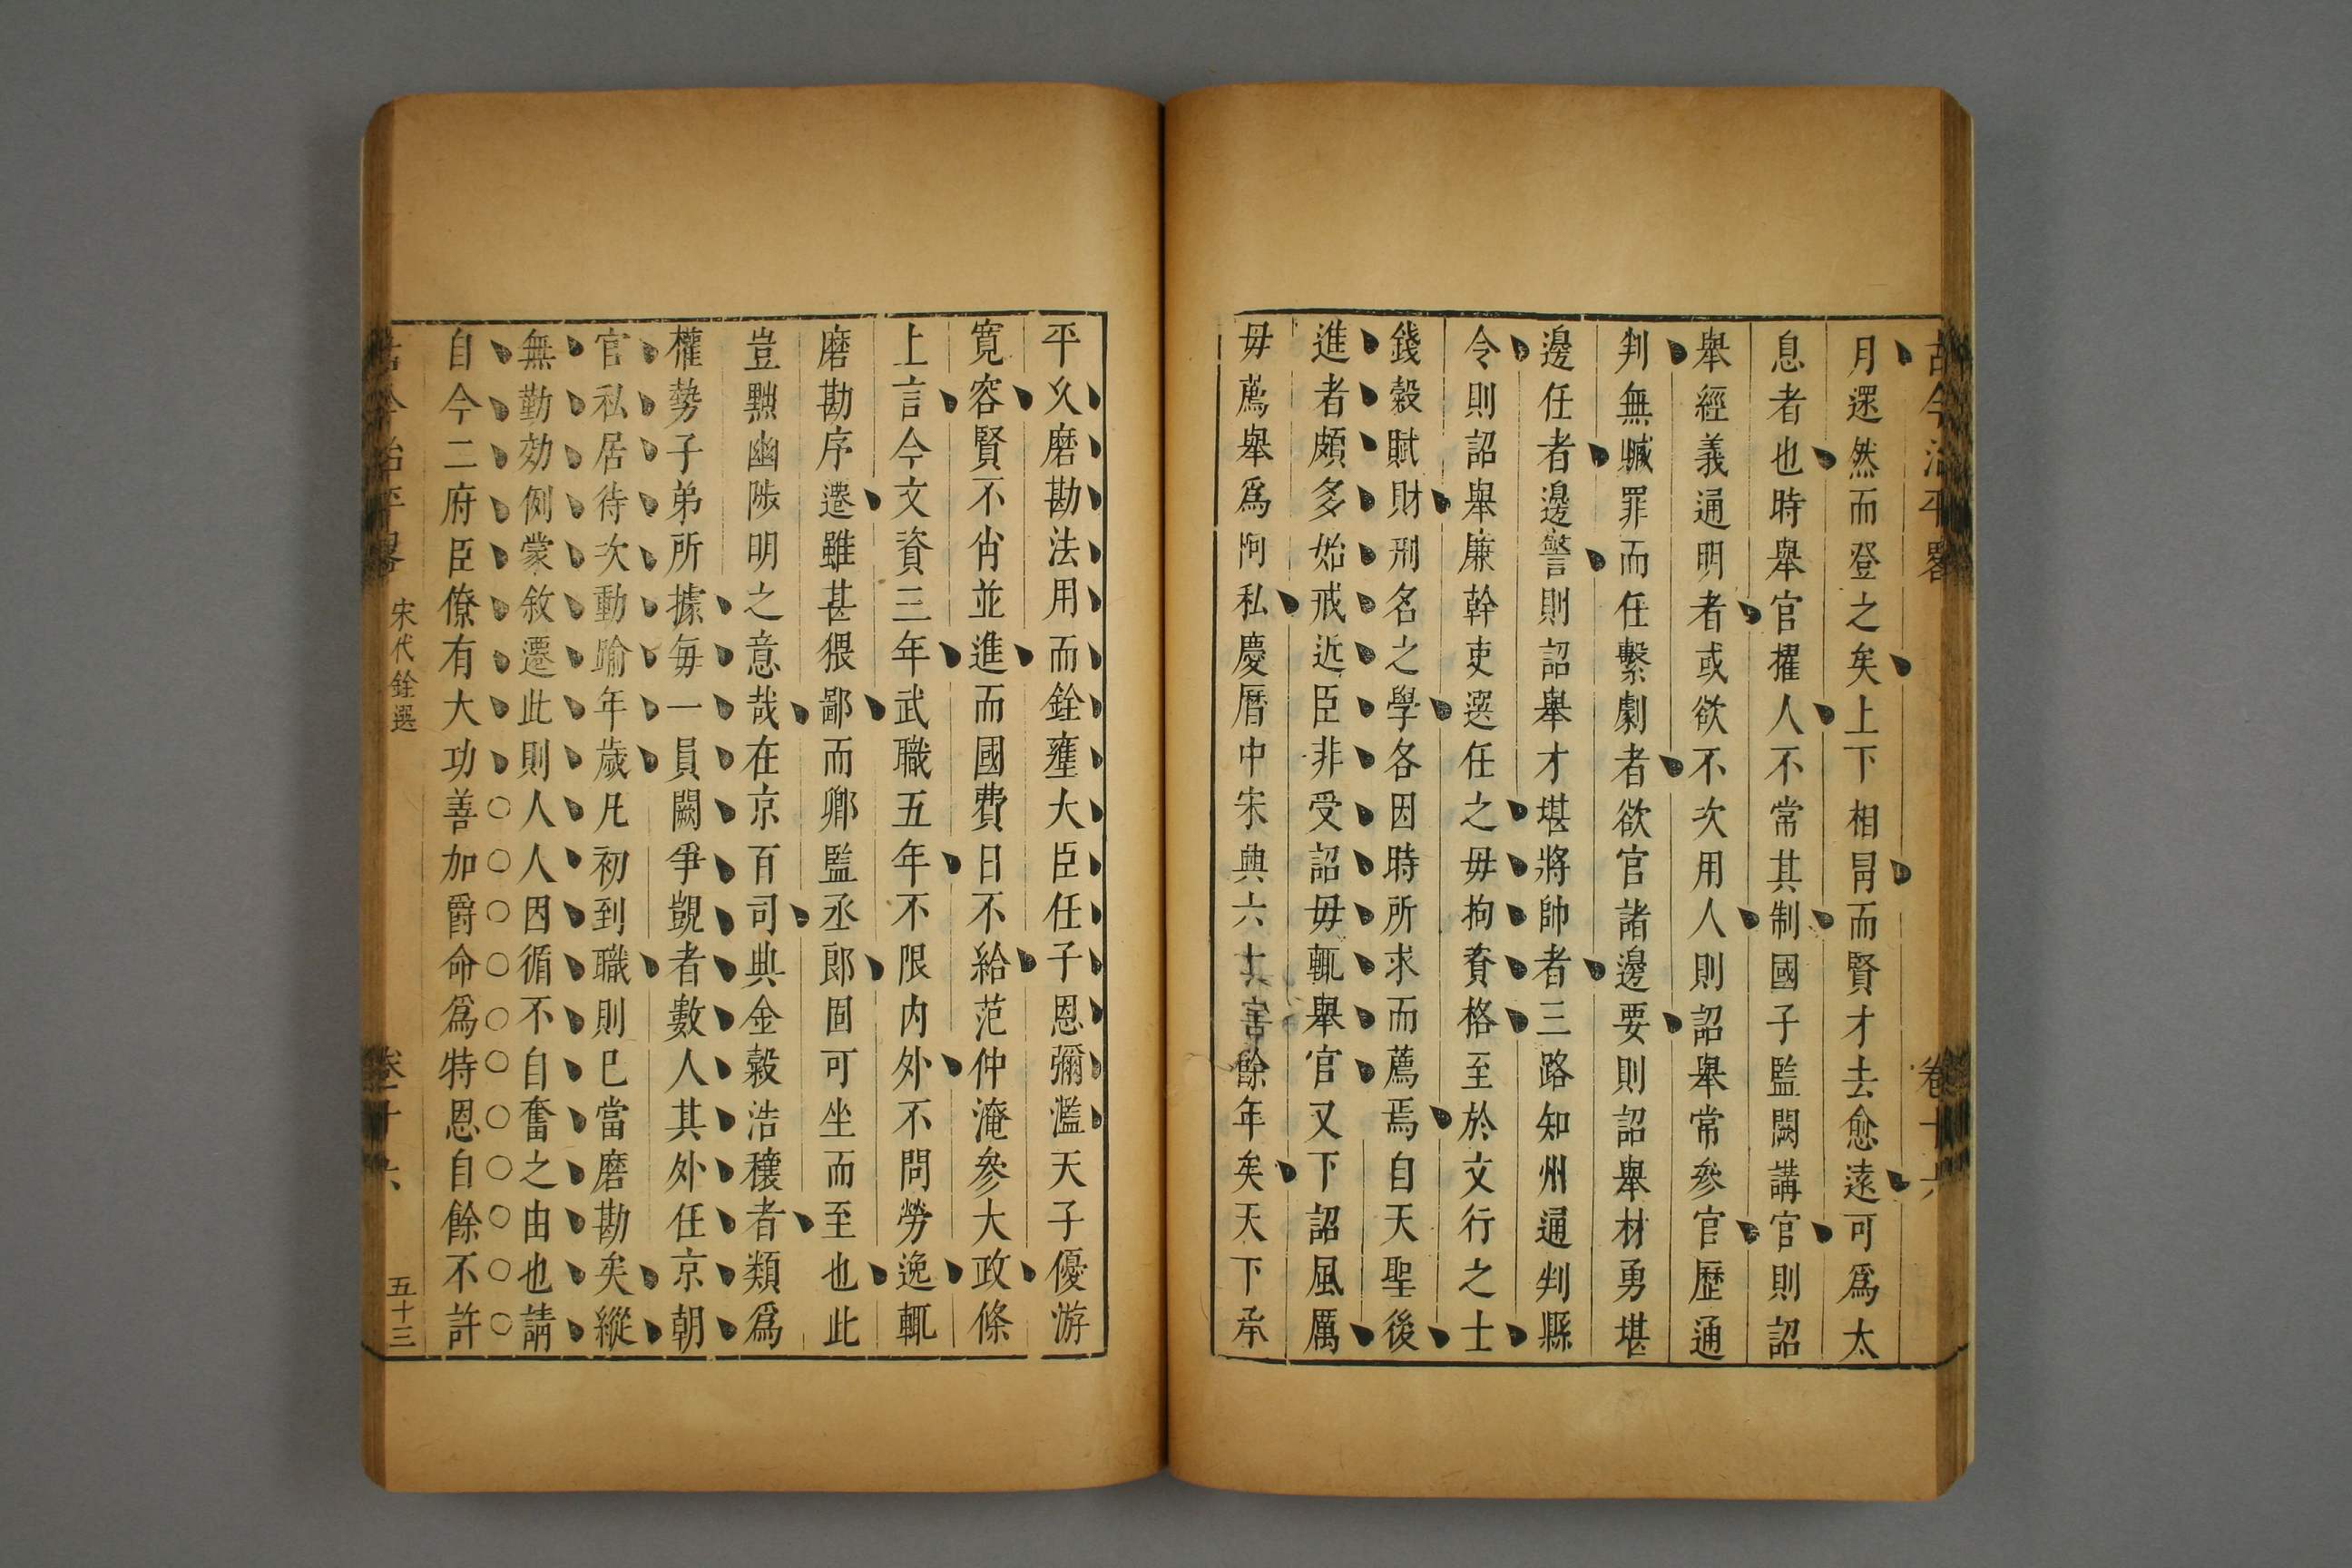 古今治平畧 卷十六
月還然而登之矣上下相冐而賢才去愈遠可爲太
息者也時舉官擢人不常其制國子監闕講官則詔
舉經義通明者或欲不次用人則詔舉常參官歷通
判無贓罪而任繫劇者欲官諸邊要則詔舉材勇堪
邊任者邊警則詔舉才堪將帥者三路知州通判縣
令則詔舉廉幹吏選任之毋拘資格至於文行之士
錢榖賦財刑名之學各因時所求而薦焉自天聖後
進者頗多始戒近臣非受詔毋輒舉官又下詔風厲
毋薦舉爲阿私慶曆中宋興六十餘年矣天下承
平乆磨勘法用而銓壅大臣任子恩彌濫天子優游
寛容賢不肖並進而國費日不給范仲淹參大政條
上言今文資三年武職五年不限内外不問勞逸輒
磨勘序遷雖甚猥鄙而卿監丞郎固可坐而至也此
豈黜幽陟明之意哉在京百司典金榖浩穰者類爲
權勢子弟所據毎一員闕爭覬者數人其外任京朝
官私居待次動踰年歲凡初到職則已當磨勘矣縱
無勤効例蒙敘遷此則人人因循不自奮之由也請
自今二府臣僚有大功善加爵命爲特恩自餘不許
古今治平畧 宋代銓選 卷十六 五十三